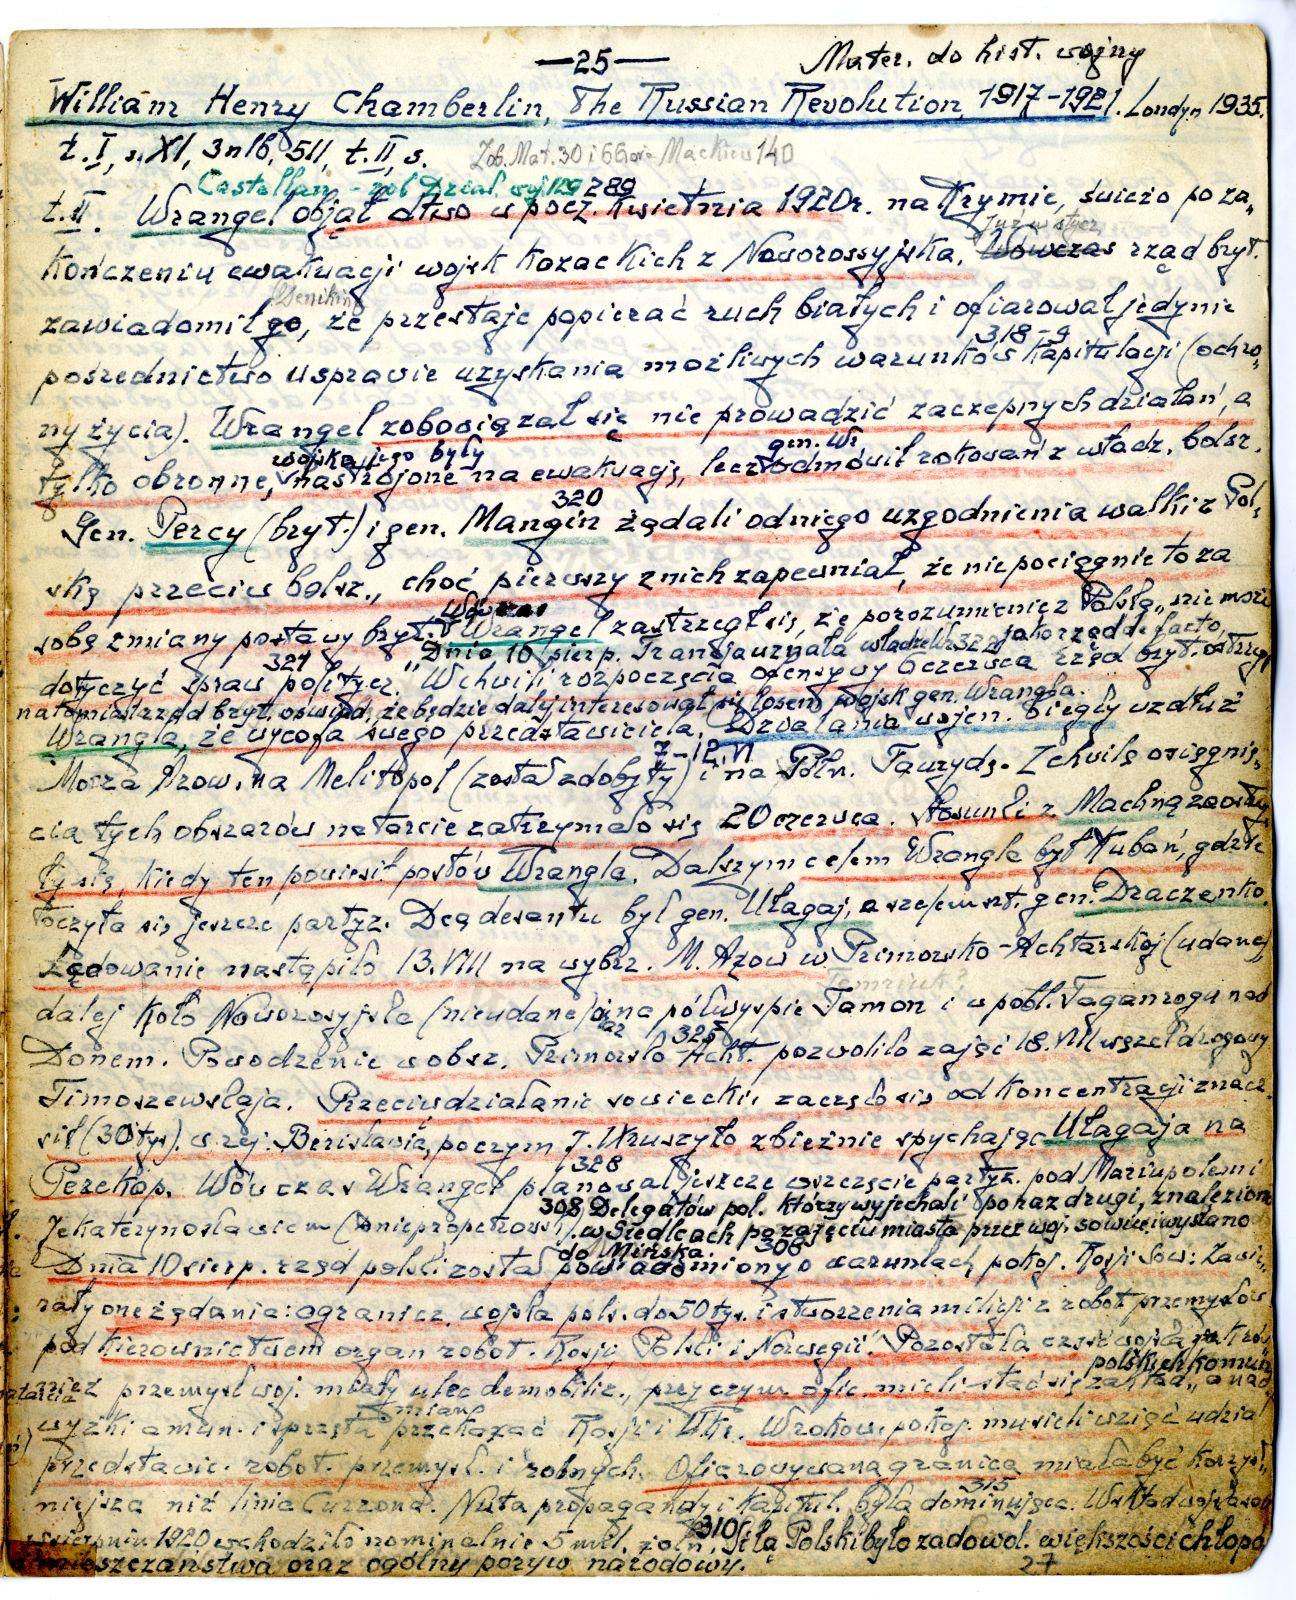 —25— Mater. do hist. wojny
William Henry Chamberlin, The Russian Revolution, 1917-1921. Londyn 1935.
t. I, s. XI, 3nlb, 511, t. II, s. Zob. Mat. 30 i 66
Castellan - zob Dział. woj 129 289
t. II. Wrangel objął dtwo w pocz. kwietnia 1920 r. na Krymie, świeżo po za„
Już w stycz.
kończeniu ewakuacji wojsk kozackich z Noworossyjska. Wówczas rząd bryt.
Denikin
zawiadomił go, że przestaje popierać ruch białych i ofiarował jedynie
318-9
pośrednictwo w sprawie uzyskania możliwych warunków kapitulacji (ochro„
ny życia). Wrangel zobowiązał się nie prowadzić zaczepnych działań, a
wojska jego były gen. Wr
tylko obronne, nastrojone na ewakuację, lecz odmówił rokowań z władz. bolsz.
320
Gen. Percy (bryt.) i gen. Mangin żądali od niego uzgodnienia walki z Pol„
ską przeciw bolsz., choć pierwszy z nich zapewniał, że nie pociągnie to za
sobą zmiany postawy bryt. Wrangel zastrzegł się, że porozumienie z Polską „nie może
321 „Dnia 10 sierp. Francja uznała władzę Wr. 322 jako rząd de facto,
dotyczyć spraw politycz." W chwili rozpoczęcia ofensywy 6 czerwca rząd bryt. ostrzegł
natomiast rząd bryt. oświad., że będzie dalej interesował się losem wojsk gen. Wrangla.
Wrangla, że wycofa swego przedstawiciela. Działania wojen. biegły wzdłuż
7-12.VI
Morza Azow. na Melitopol (został zdobyty) i na Półn. Taurydę. Z chwilą osiągnię„
cia tych obszarów natarcie zatrzymało się 20 czerwca. Stosunki z Machną zaostrzy
ły się, kiedy ten powiesił posłów Wrangla. Dalszym celem Wrangla był Kubań, gdzie
toczyła się jeszcze partyz. Dcą desantu był gen. Ułagaj, a szefem szt. gen. Draczenko.
Lądowanie nastąpiło 13.VIII na wybrz. M. Azow w Primorsko-Achtarskoj (udane)
dalej koło Noworosyjska (nieudane) na półwyspie Taman i w pobl. Taganrogu nad
325
Donem. Powodzenie w obsz. Primorsko Acht. pozwoliło zająć 18.VIII węzeł drogowy
Timoszewskaja. Przeciwdziałanie sowieckie zaczęło się od koncentracji znacz.
sił (30 tys). w rej. Berisławia, poczym ruszyło zbieżnie spychając Ułagaja na
328
Perekop. Wówczas Wrangel planował jeszcze wszczęcie partyz. pod Mariupolem i
308 Delegatów pol. którzy wyjechali po raz drugi, znaleziono
Jekaterynosławiem (Dniepropetrowsk). w Siedlcach po zajęciu miasta przez woj. sowiec. i wysłano
do Mińska. 308
Dnia 10 sierp. rząd polski został powiadomiony o warunkach pokoj. Rosji Sow: Zawie„
rały one żądania: ogranicz. wojska pols. do 50 tys. i stworzenia milicji z robot. przemysłow
pod kierownictwem organ robot. Rosji, Polski i Norwegii". Pozostała część wojska
polskich komun
nież przemysł woj. miały ulec demobiliz., przy czym ofic. mieli stać się zakład„ a nad
miano
wyżki amun. i sprzętu przekazać Rosji i Ukr. W rokow. pokoj. musieli wziąć udział
przedstawic. robot. przemysł. i rolnych. Ofiarowywana granica miała być korzyst„
315
niejsza niż linia Curzona. Nuta propagandy i kapitul. była dominująca. W skład wojska
w sierpniu 1920 wchodziło nominalnie 5 mil. żołn. 310 Siłą Polski było zadowol. większości chłopo
i mieszczaństwa oraz ogólny poryw narodowy.
27